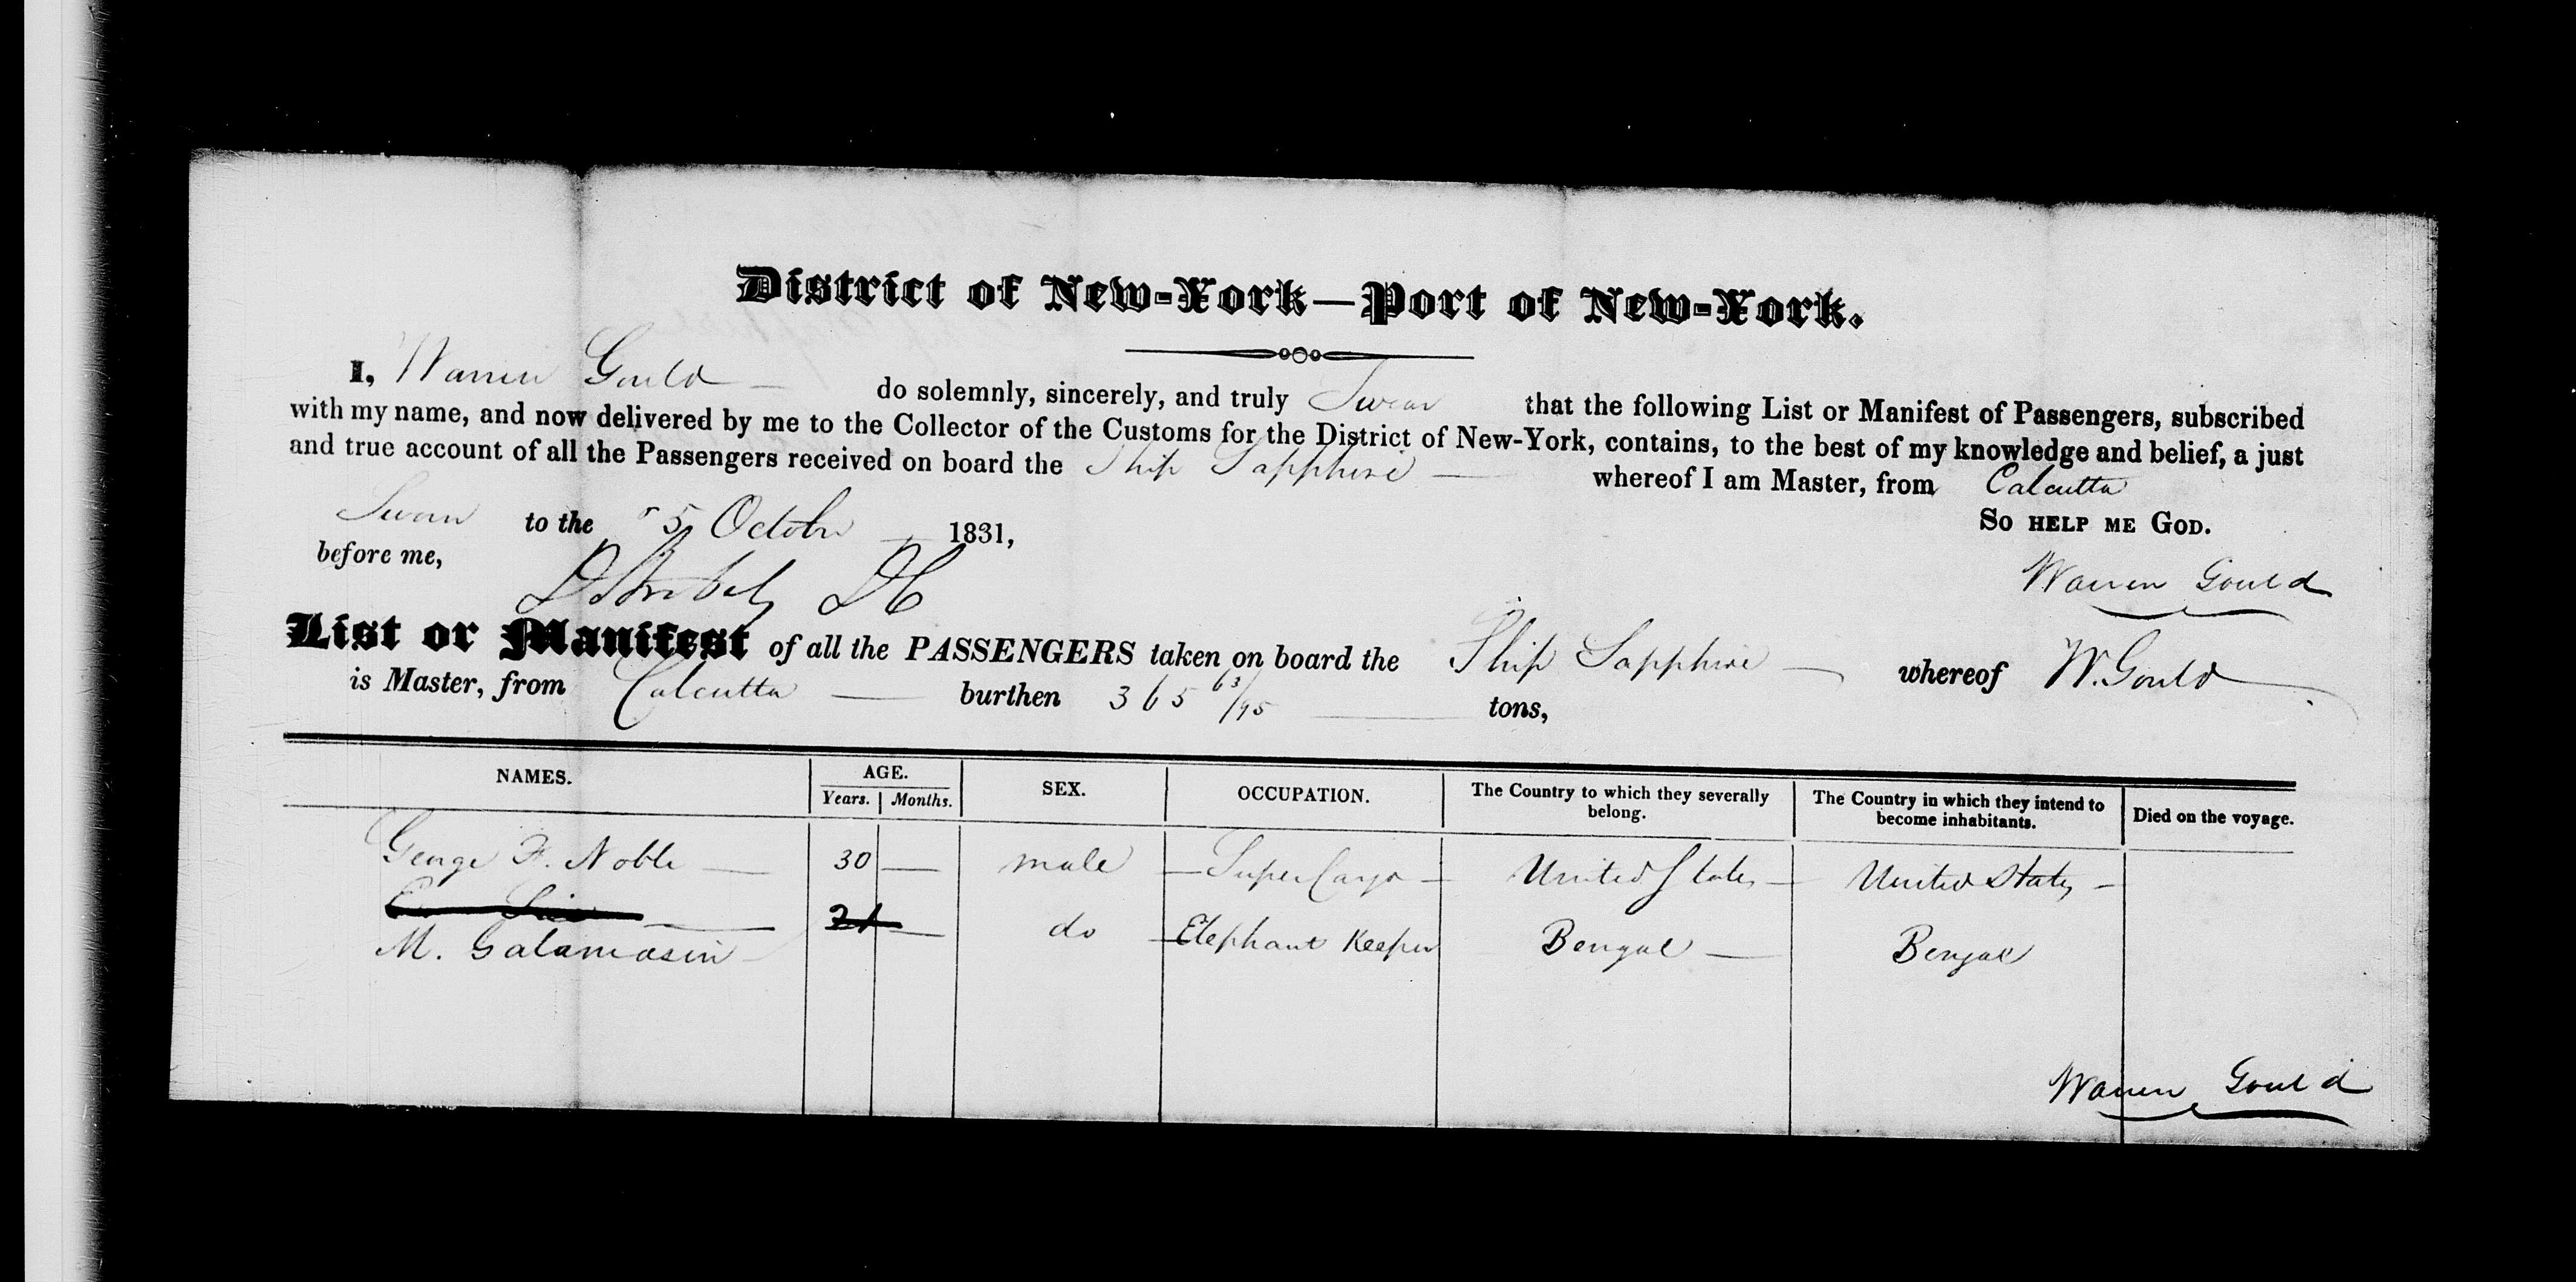 District of New-York—Port of New-York.
I, Warren Gould do solemnly, sincerely, and truly Swear that the following List or Manifest of Passengers, subscribed
with my name, and now delivered by me to the Collector of the Customs for the District of New-York, contains, to the best of my knowledge and belief, a just
and true account of all the Passengers received on board the Ship Sapphire whereof I am Master, from Calcutta
Sworn to the 5 October 1831, So help me God.
before me, Warren Gould
DC
List or Manifest of all the PASSENGERS taken on board the Ship Sapphire whereof W. Gould
is Master, from Calcutta burthen 365 63/95 tons,
NAMES. AGE. Years. Months. SEX. OCCUPATION. The Country to which they severally belong. The Country in which they intend to become inhabitants. Died on the voyage.
George F. Noble — 30 — male — SuperCargo — United States — United States —
21 — do Elephant Keeper Bengal — Bengal
M. Galamasin
Warren Gould